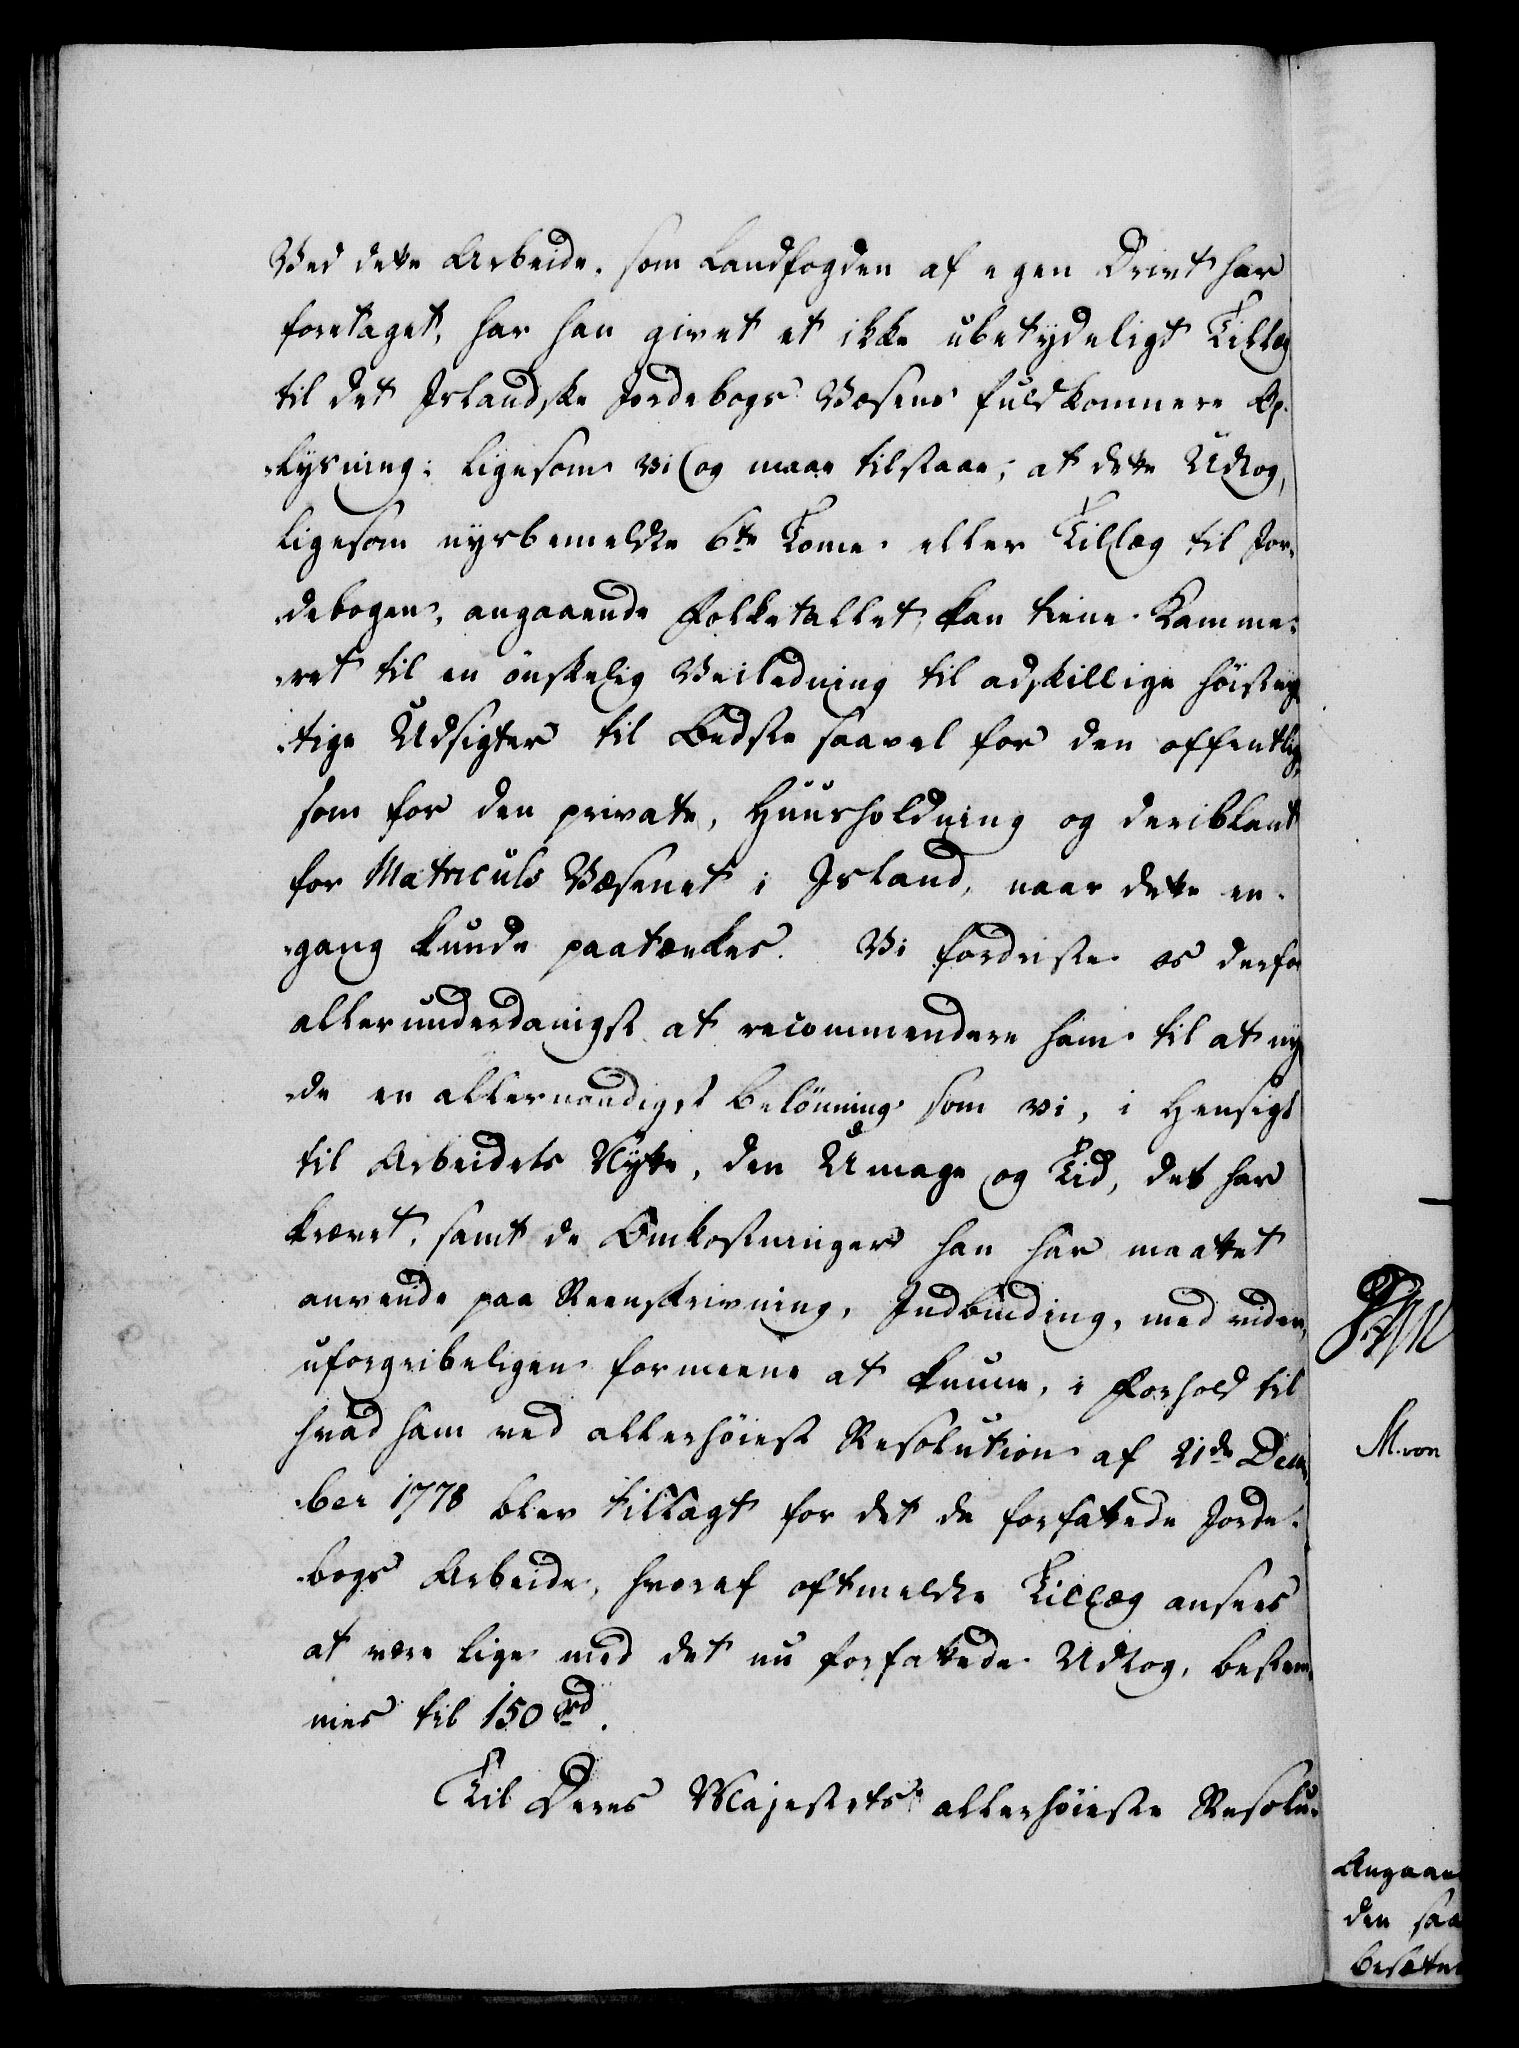 Ved dette Arbeide, som Landfogden af egen Drivt har
foretaget, har han givet et ikke ubetydeligt Tillæg
til det Islandske Jordebogs Væsens fuldkomnere Op-
lysning; ligesom vi og maae tilstaae, at dette Udtog,
ligesom nysbemeldte 6te Tome eller Tillæg til Jor-
debogen, angaaende Folketallet, kan tiene Kamme-
ret til en önskelig Veiledning til adskillige höistvig-
tige Udsigter til Bedste saavel for den offentlig
som for den private, Huusholdning og deriblant
for Matriculs Væsenet i Island, naar dette en-
gang kunde paatænkes. Vi fordriste os derfor
allerunderdanigst at recommendere ham til at ny-
de en allernaadigst Belönning som vi, i Hensigt
til Arbeidets Nytte, den Umage og Tid, det har
krævet, samt de Omkostninger han har maattet
anvende paa Reenskrivning, Indbinding, med videre,
uforgribeligen formeene at kunne, i Forhold til
hvad ham ved allerhöiest Resolution af 21de Decem-
ber 1778 blev tillagt for det da forfattede Jorde-
bogs Arbeide, hvoraf oftmeldte Tillæg ansees
at være lige med det nu forfattede Udtog, bestem-
mes til 150 rd.
Til Deres Majestets allerhöieste Resolu-
M. von
Angaae
den saa
besætte